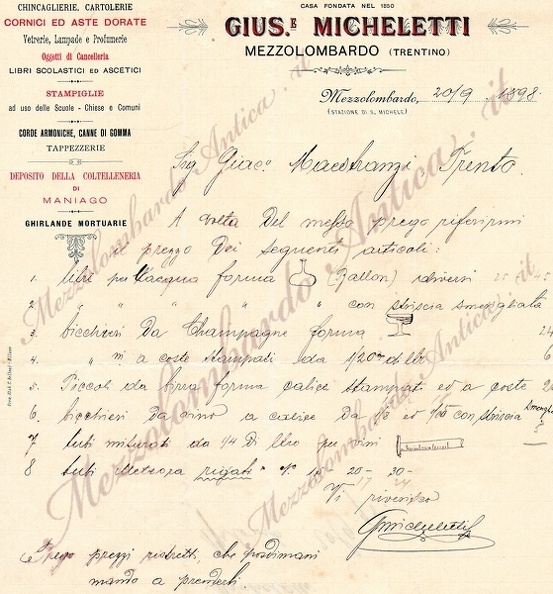 CHINCAGLIERIE, CARTOLERIE
CORNICI ED ASTE DORATE
Vetrerie, Lampade e Profumerie
Oggetti di Cancelleria
LIBRI SCOLASTICI ED ASCETICI
STAMPIGLIE
ad uso delle Scuole - Chiese e Comuni
CORDE ARMONICHE, CANNE DI GOMMA
TAPPEZZERIE
DEPOSITO DELLA COLTELLENERIA
DI
MANIAGO
GHIRLANDE MORTUARIE
CASA FONDATA NEL 1850
GIUS.E MICHELETTI
MEZZOLOMBARDO (TRENTINO)
Mezzolombardo, 20/9 1898
(STAZIONE DI S. MICHELE)
Sig Giac. Maestranzi Trento.
A volta Del messo prego riferirmi
il prezzo Dei seguenti articoli:
1. litri per l'acqua forma (Ballon) diversi 25 45
2 " " " " " con striscia smerigliata
3 bicchieri Da Champagne forma
4. " a coste stampati da 1/20 di litro
5. Piccoli da birra forma calice stampati ed a coste
6. bicchieri Da vino a calice Da 1/8 ed con striscia
7 tubi misurati da 1/4 Di litro per vini
8 tubi Meteora rigati 15 20- 30-
17 24
Vi riverisco
GMicheletti
Prego prezzi ristretti, che posdimani
mando a prenderli.
Mezzolombardo Antica.it
Mezzolombardo Antica.it
Mezzolombardo Antica.it